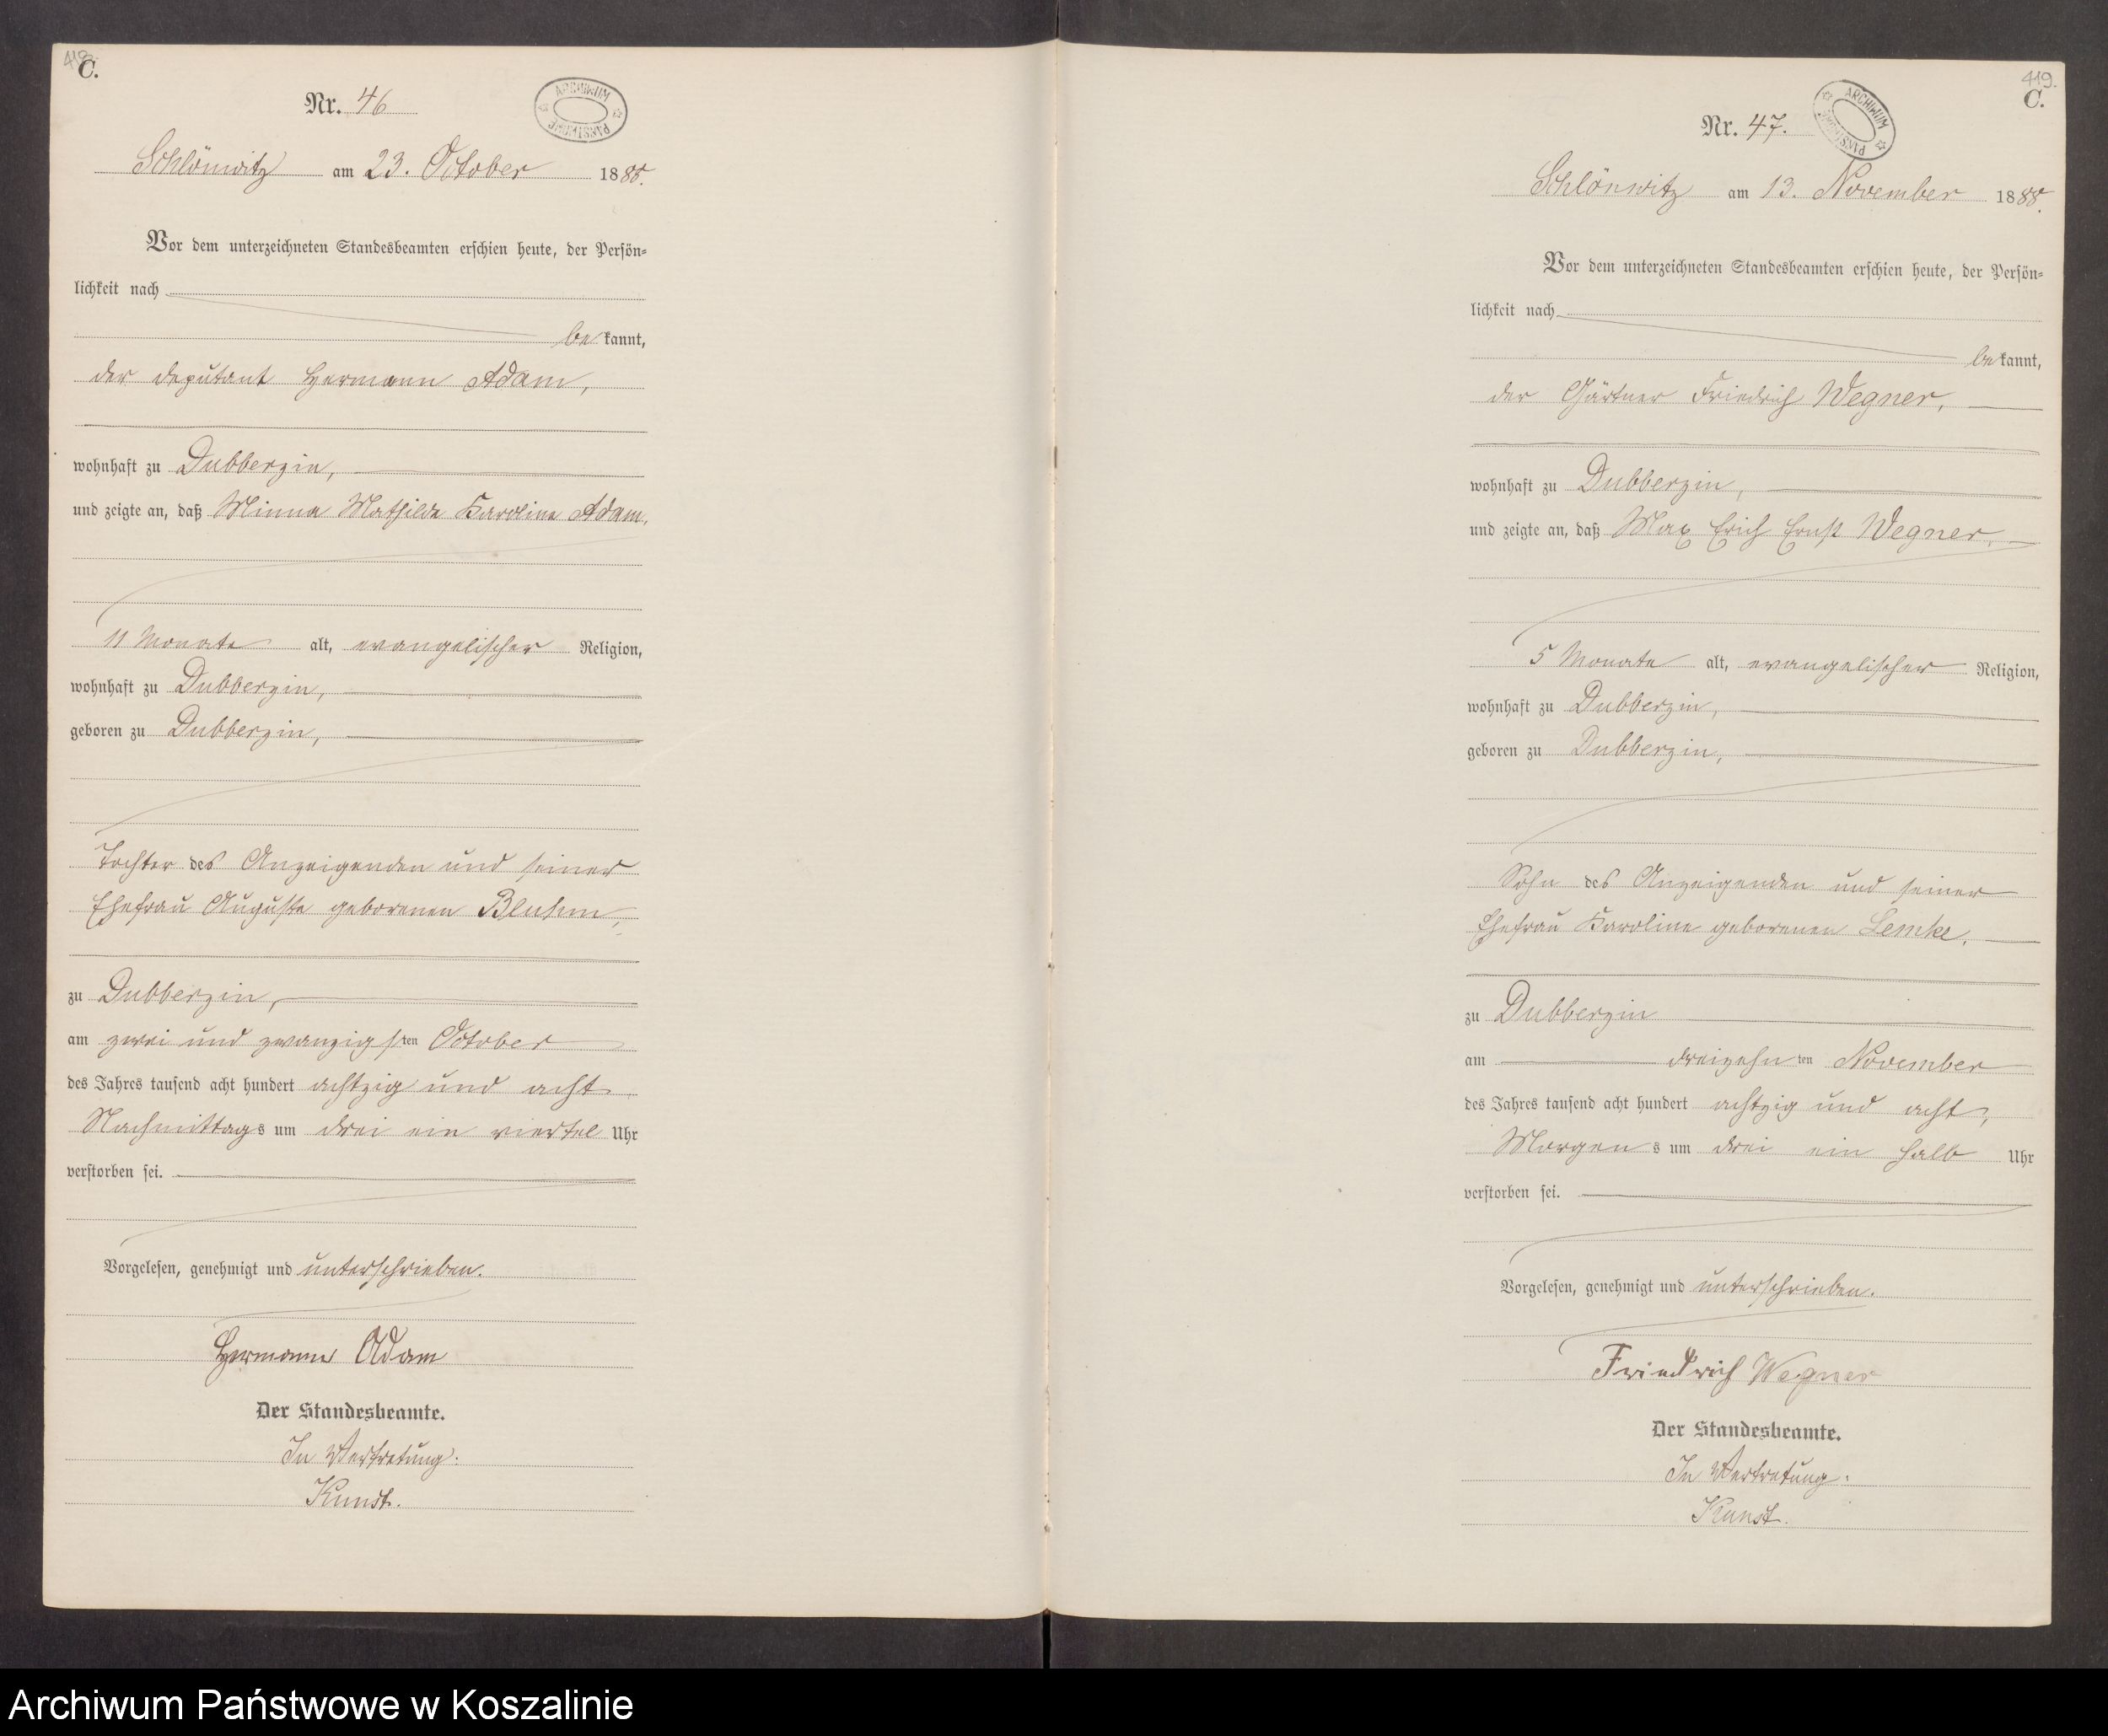 418.
C.
Nr. 46
ARCHIWUM PAŃSTWOWE
Schlönwitz am 23. October 1888.
Vor dem unterzeichneten Standesbeamten erschien heute, der Persön-
lichkeit nach
bekannt,
der Deputant Hermann Adam,
wohnhaft zu Dubberzin,
und zeigte an, daß Minna Mathilde Karoline Adam,
11 Monate alt, evangelischer Religion,
wohnhaft zu Dubberzin,
geboren zu Dubberzin,
Tochter des Anzeigenden und seiner
Ehefrau Auguste geborenen Bluhm,
zu Dubberzin,
am zwei und zwanzigsten October
des Jahres tausend acht hundert achtzig und acht
Nachmittags um drei ein viertel Uhr
verstorben sei.
Vorgelesen, genehmigt und unterschrieben.
Hermann Adam
Der Standesbeamte.
In Vertretung:
Kunst.
419.
C.
Nr. 47.
ARCHIWUM PAŃSTWOWE
Schlönwitz am 13. November 1888.
Vor dem unterzeichneten Standesbeamten erschien heute, der Persön-
lichkeit nach
bekannt,
der Gärtner Friedrich Wegner,
wohnhaft zu Dubberzin,
und zeigte an, daß Max Erich Ernst Wegner,
5 Monate alt, evangelischer Religion,
wohnhaft zu Dubberzin,
geboren zu Dubberzin,
Sohn des Anzeigenden und seiner
Ehefrau Karoline geborenen Lemke,
zu Dubberzin
am dreizehnten November
des Jahres tausend acht hundert achtzig und acht,
Morgens um drei ein halb Uhr
verstorben sei.
Vorgelesen, genehmigt und unterschrieben.
Friedrich Wegner
Der Standesbeamte.
In Vertretung:
Kunst.
Archiwum Państwowe w Koszalinie